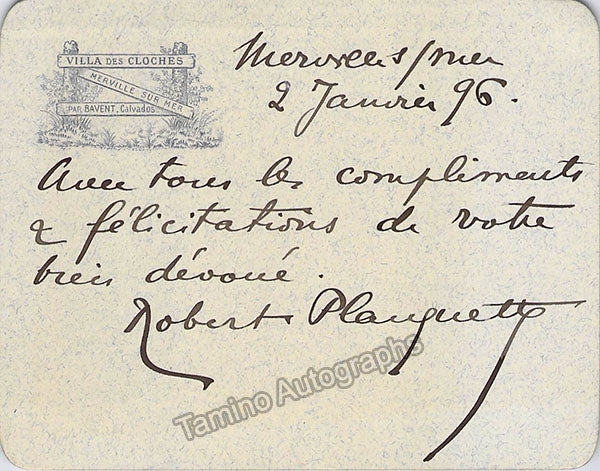 VILLA DES CLOCHES
MERVILLE SUR MER
PAR BAVENT, Calvados
Merville s/mer
2 Janvier 96.
Avec tous les compliments
& félicitations de votre
bien dévoué.
Robert Planquette
Tamino Autographs